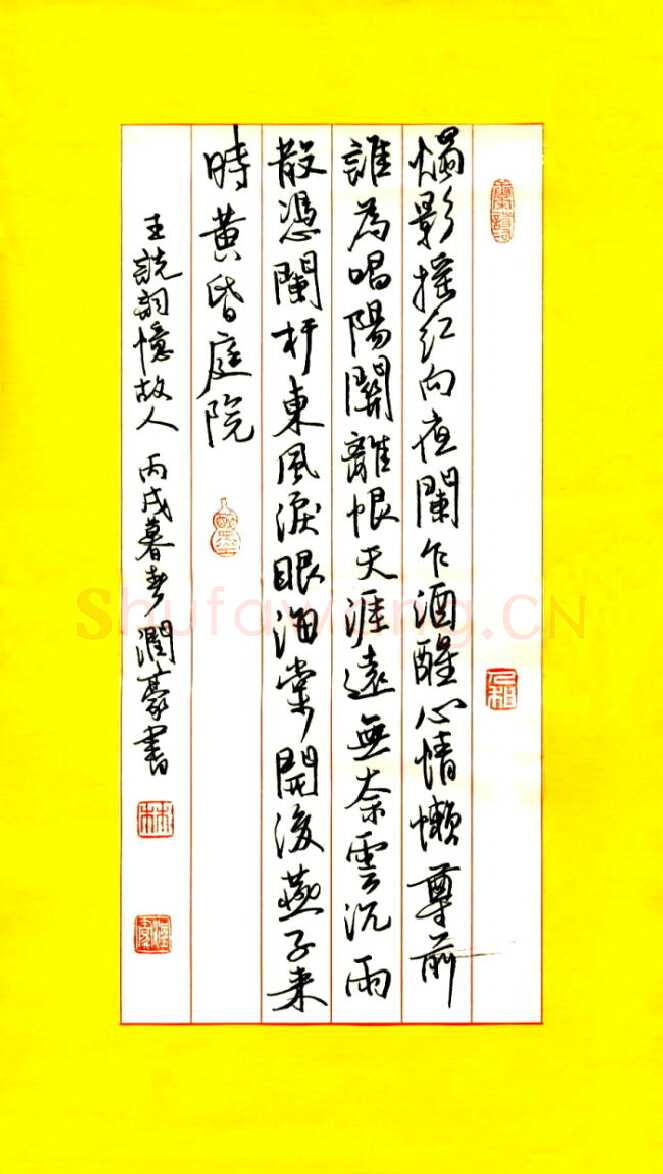 燭影搖红向夜闌乍酒醒心情懶尊前
誰為唱陽關離恨天涯遠無奈雲沉雨
散憑闌杆東風淚眼海棠開後燕子来
時黄昏庭院
王詵詞憶故人 丙戌暮春潤豪書
林
Shufawang.CN